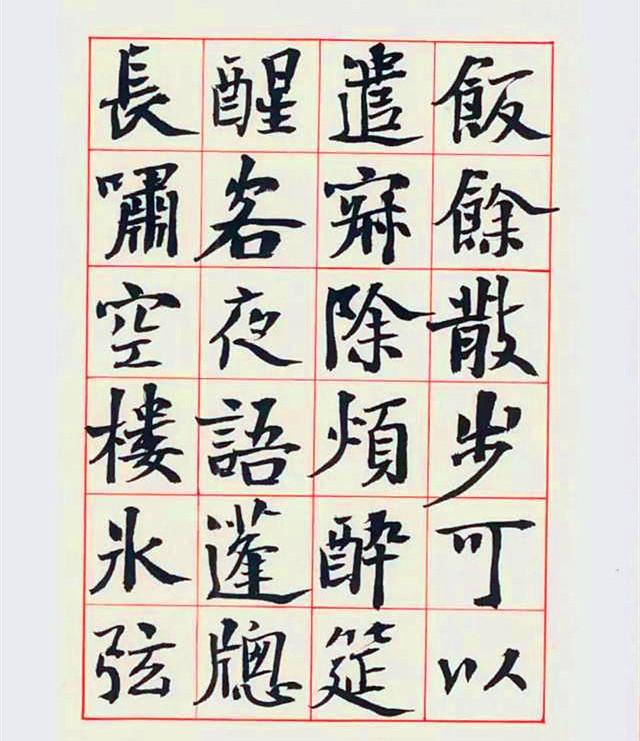 飯餘散步可以
遣寂除煩醉筵
醒客夜語蓬牕
長嘯空樓氷弦